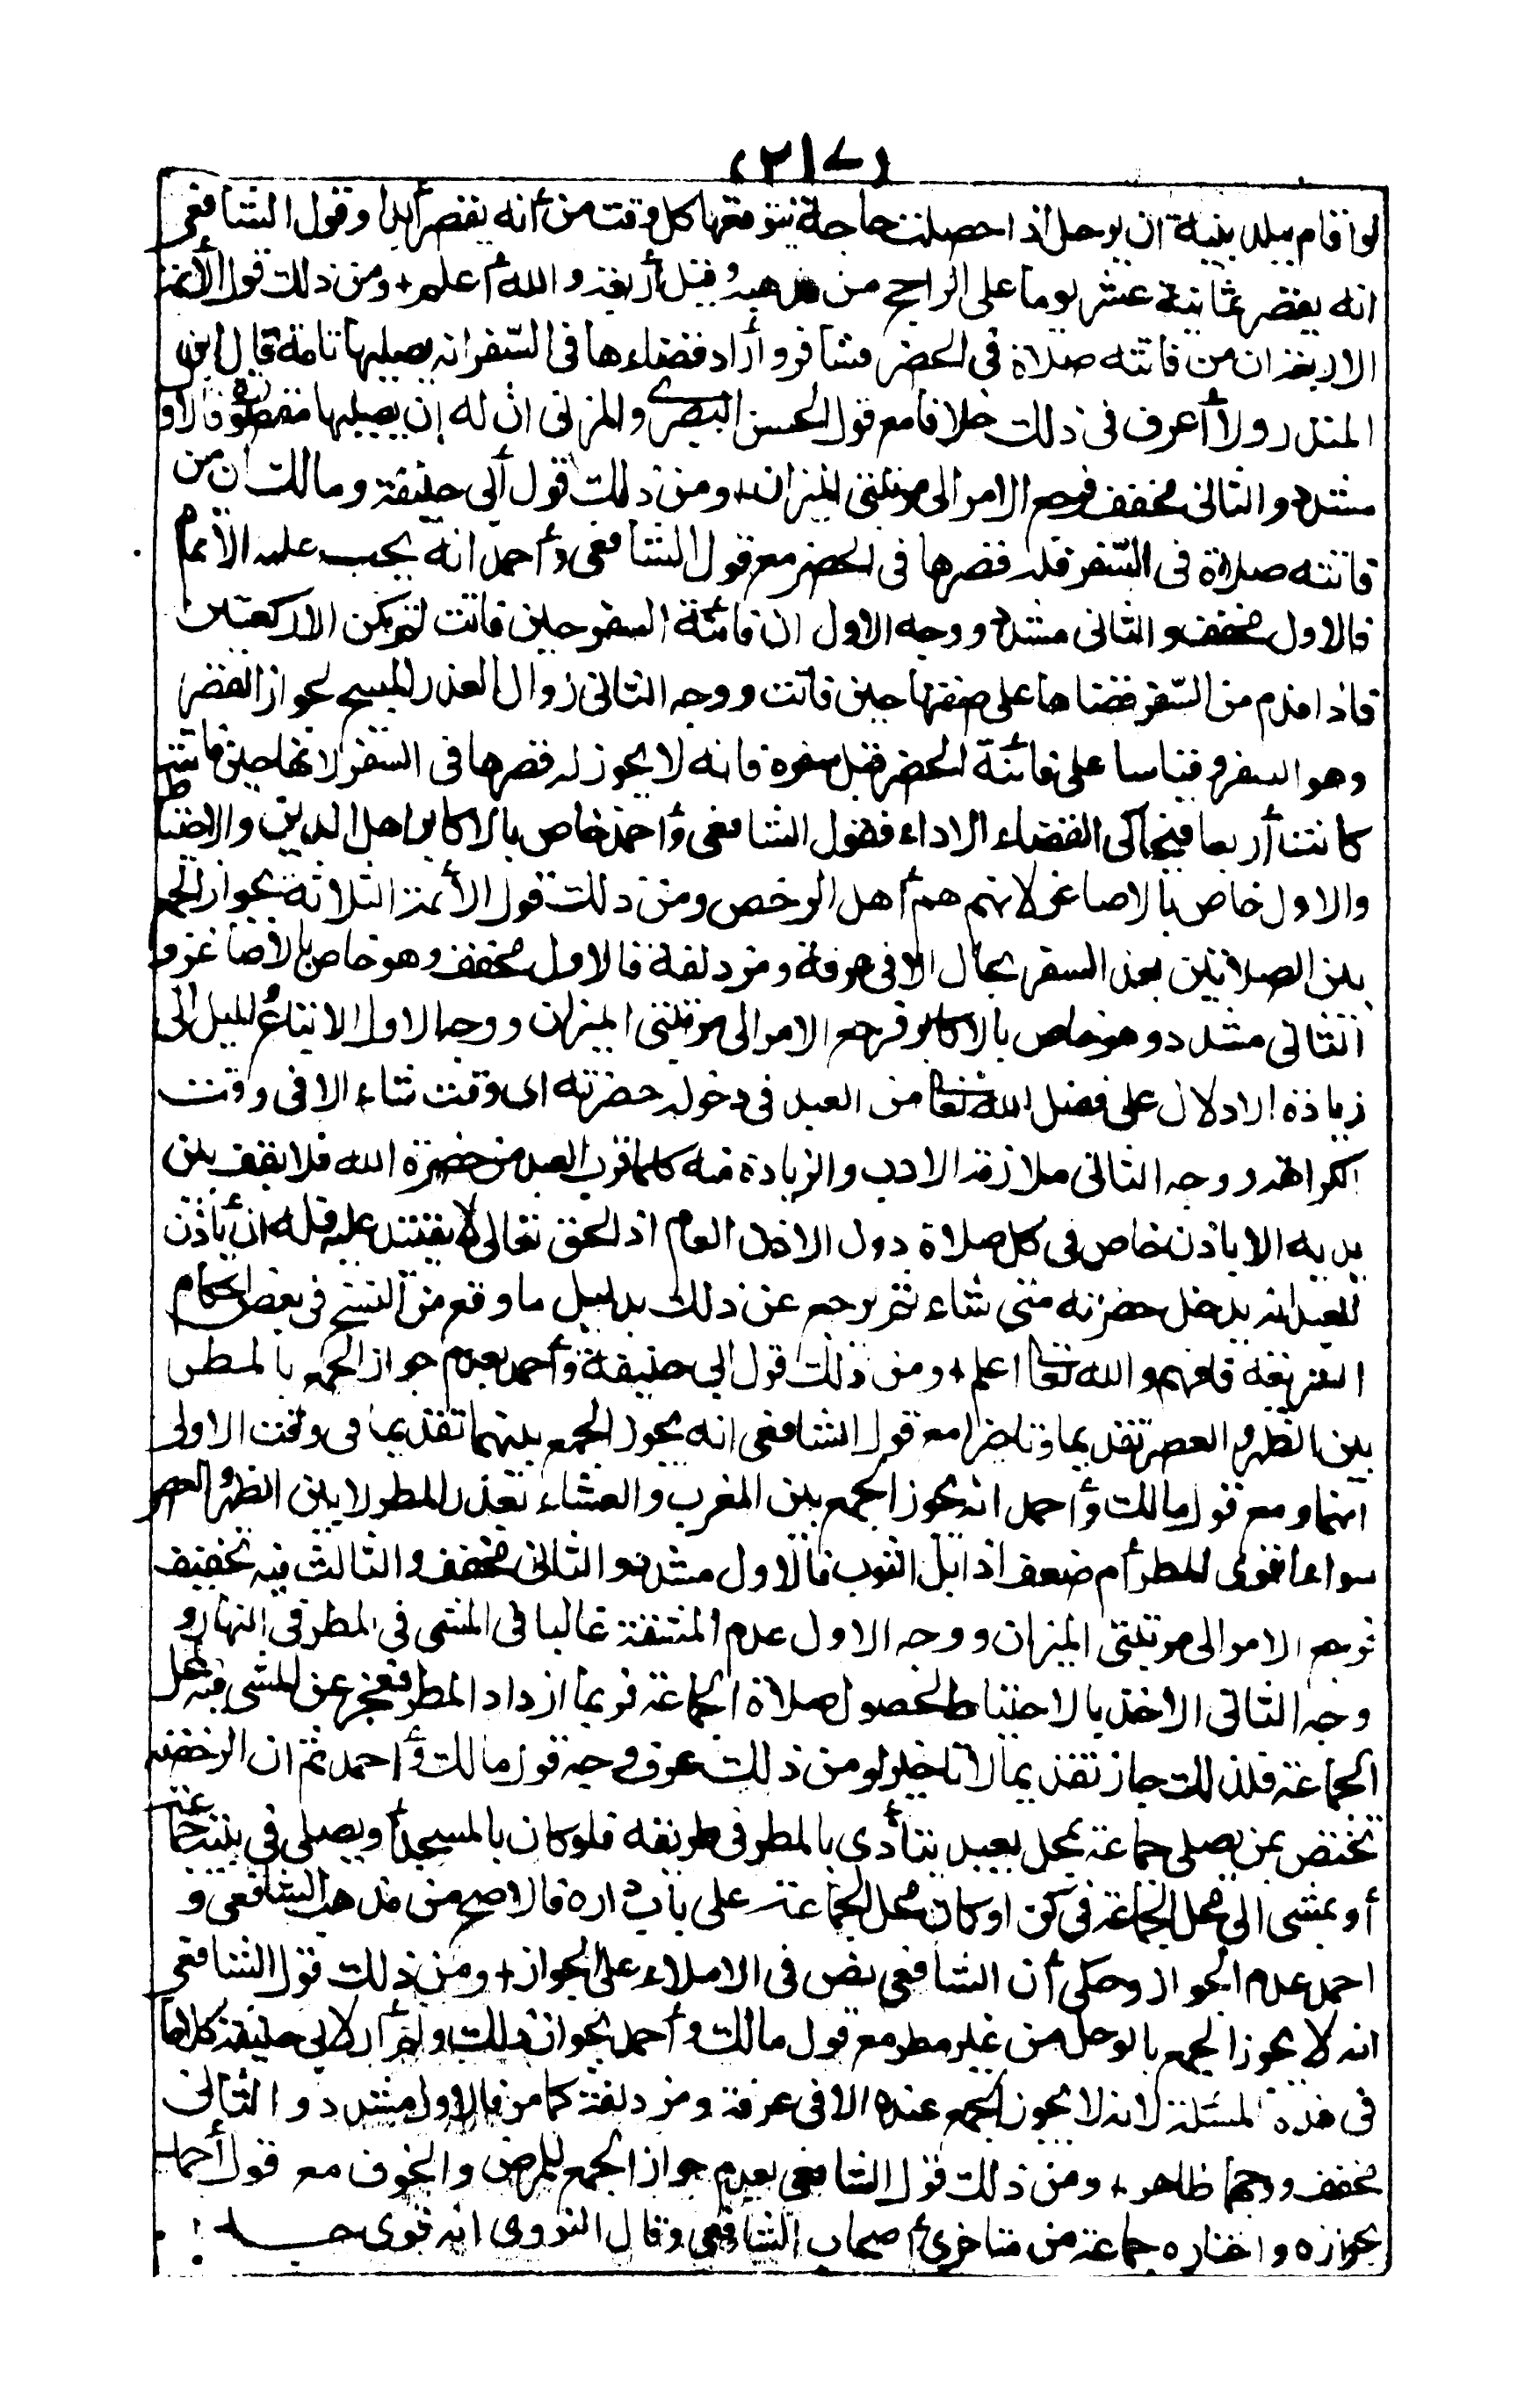 (٢١٧)
لو أقام ببلد بنية ان يرحل اذا حصلت حاجة يتوقعها كل وقت من أنه يقصر أبدا وقول الشافعي
انه يقصر ثمانية عشر يوما على الراجح من مذهبه وقيل أربعة والله أعلم + ومن ذلك قول الأئمة
الاربعة ان من فاتته صلاة فى الحضر فسافر وأراد قضاءها فى السّفر انه يصليها تامة قال ابن
المنذر ولا أعرف فى ذلك خلافا مع قول الحسن البصرى والمزنى ان له ان يصليها مقصورة فالاول
مشدد والثانى مخفف فرجع الامر الى مرتبتى الميزان + ومن ذلك قول أبى حنيفة ومالك ان من
فاتته صلاة فى السّفر فله قصرها فى الحضر مع قول الشافعى وأحمد انه يجب عليه الاتمام
فالاول مخفف والثانى مشدد ووجه الاول ان فائتة السفر حين فاتت لم تكن الا ركعتين
فاذا قدم من السّفر قضاها على صفتها حين فاتت ووجه الثانى زوال العذر المبيح لجواز القصر
وهو السفر وقياسا على فائتة الحضر قبل سفره فانه لا يجوز له قصرها فى السفر لانها حين فاتت
كانت أربعا فيحاكى القضاء الاداء فقول الشافعى وأحمد خاص بالاكابر اهل الدين والاحتياط
والاول خاص بالاصاغر لانهم هم أهل الرخص ومن ذلك قول الأئمة الثلاثة بجواز الجمع
بين الصلاتين بعذر السفر بحال الا فى عرفة ومزدلفة فالاول مخفف وهو خاص بالاصاغر و
الثانى مشدد وهو خاص بالاكابر فرجع الامر الى مرتبتى الميزان ووجه الاول الاتباع للميل الى
زيادة الادلال على فضل الله تعا من العبد فى دخوله حضرته اى وقت شاء الا فى وقت
الكراهة ووجه الثانى ملازمة الادب والزيادة منه كلما قرب العبد من حضرة الله فلا يقف بين
يديه الا باذن خاص فى كل صلاة دون الاذن العام اذ الحق تعالى لا يقتيد عليه فله ان يأذن
للعبد انه يدخل حضرته متى شاء ثم يرجع عن ذلك بدليل ما وقع من النسخ فى بعض احكام
الشريعة فافهم والله تعا اعلم + ومن ذلك قول ابى حنيفة وأحمد بعدم جواز الجمع بالمطر
بين الظهر والعصر تقديما وتاخيرا مع قول الشافعى انه يجوز الجمع بينهما تقديما فى وقت الاولى
منهما ومع قول مالك وأحمد انه يجوز الجمع بين المغرب والعشاء بعذر المطر لا بين الظهر والعصر
سواء أقوى المطر أم ضعف اذا بل الثوب فالاول مشدد والثانى مخفف والثالث فيه تخفيف
فرجع الامر الى مرتبتى الميزان ووجه الاول عدم المشقة غالبا فى المشى فى المطر فى النهار و
وجه الثانى الاخذ بالاحتياط لحصول صلاة الجماعة فربما ازداد المطر فعجز عن المشى فيه لمحل
الجماعة فلذلك جاز تقديما لا تاخيرا ومن ذلك عرف وجه قول مالك وأحمد ثم ان الرخصة
تختص بمن يصلى جماعة بمحل بعيد يتأدى بالمطر فى طريقه فلو كان بالمسجد أو يصلى فى بيته جماعة
أو يمشى الى محل الجماعة فى كن او كان محل الجماعة على باب داره فالاصح من مذهب الشافعى و
احمد عدم الجواز وحكى أن الشافعى نص فى الاملاء على الجواز + ومن ذلك قول الشافعى
انه لا يجوز الجمع بالوحل من غير مطر مع قول مالك وأحمد بجواز ذلك ولم أر لابى حنيفة كلاما
فى هذه المسئلة لانه لا يجوز الجمع عنده الا فى عرفة ومزدلفة كما مر فالاول مشدد والثانى
مخفف ووجههما ظاهر + ومن ذلك قول الشافعى بعدم جواز الجمع للمرض والخوف مع قول أحمد
بجوازه واختاره جماعة من متاخرى أصحاب الشافعى وقال النووى انه قوى جـــدا